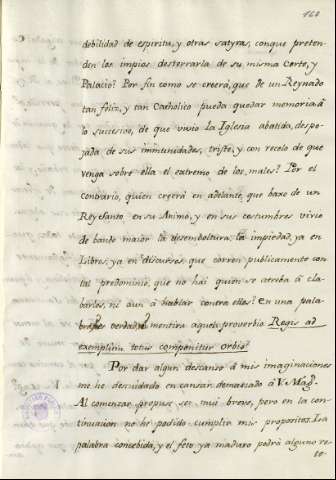 160
debilidad de espiritu, y otras satyras, conque preten-
den los impios desterrarla de su misma Corte, y
Palacio? Por fin como se creerá, que de un Reynado
tan feliz, y tan Catholico pueda quedar memoria á
lo sucesivo, de que vivio la Iglesia abatida, despo-
jada de sus immunidades, triste, y con recelo de que
venga sobre ella el extremo de los males? Por el
contrario, quien creerá en adelante, que baxo de un
Rey Santo en su Animo, y en sus costumbres vivio
de tanto maior la desemboltura, la impiedad, ya en
Libros, ya en discursos que corren publicamente con
tal predominio, que no hai quien se atreba á
barlos, ni aun á hablar contra ellos? En una pala-
bra verdad, mentira aquel proverbio Regis ad
exemplum totus componitur orbis?
Por dar algun descanso á mis imaginaciones
me he descuidado en cansar demasiado á V. Magd.
Al comenzar propuse ser mui breve, pero en la con-
tinuacion no he podido cumplir mis propositos. La
palabra concebida, y el feto ya maduro podrá alguno re-
te-